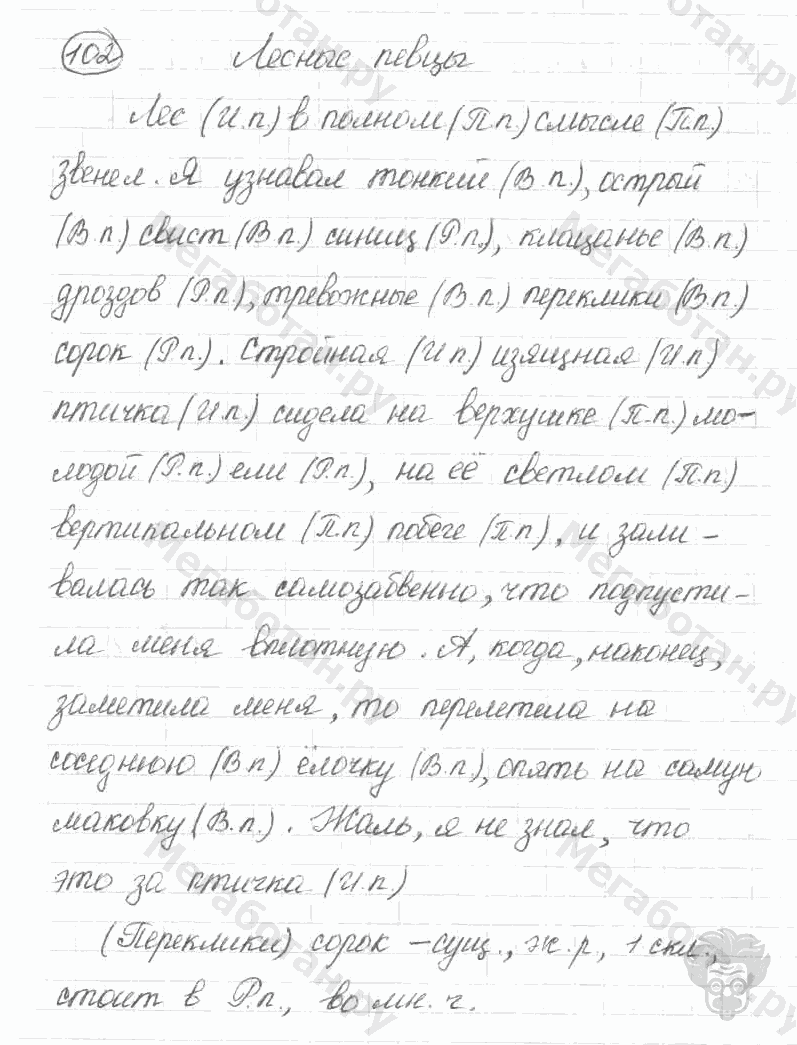 102 Лесные певцы
Лес (И.п.) в полном (П.п.) смысле (П.п.)
звенел. Я узнавал тонкий (В.п.), острый
(В.п.) свист (В.п.) синиц (Р.п.), клацанье (В.п.)
дроздов (Р.п.), тревожные (В.п.) переклики (В.п.)
сорок (Р.п.). Стройная (И.п.) изящная (И.п)
птичка (И.п.) сидела на верхушке (П.п.) мо-
лодой (Р.п.) ели (Р.п.), на её светлом (П.п)
вертикальном (П.п) побеге (П.п), и зали-
валась так самозабвенно, что подпусти-
ла меня вплотную. А, когда, наконец,
заметила меня, то перелетела на
соседнюю (В.п) ёлочку (В.п.), опять на самую
маковку (В.п.). Жаль, я не знал, что
это за птичка (И.п)
(Переклики) сорок – сущ., ж.р, 1 скл.,
стоит в Р.п., во мн. ч.
Мегаботан.ру